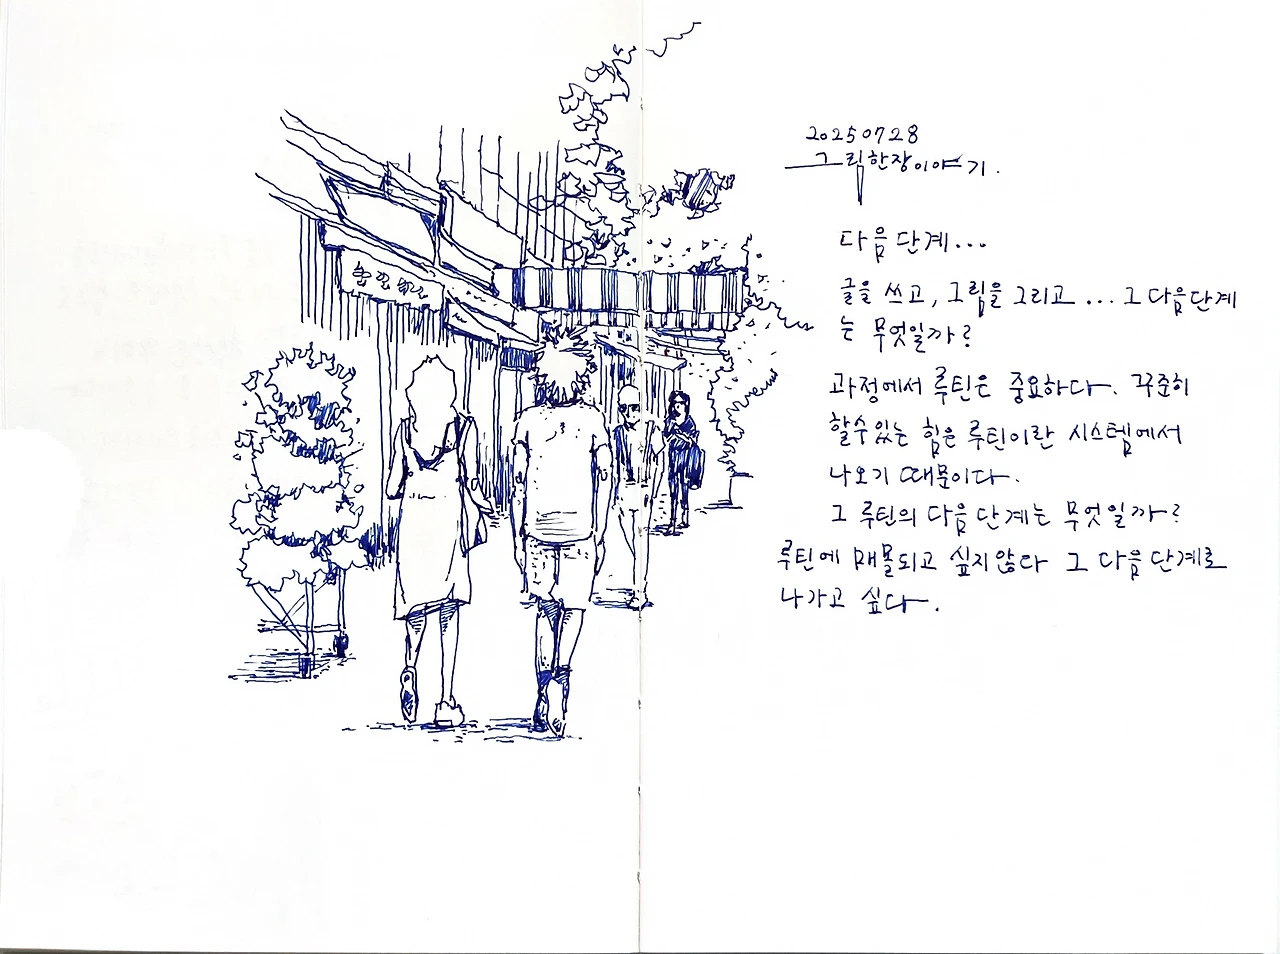 20250728
그림한장이야기.
다음단계...
글을 쓰고, 그림을 그리고 ... 그 다음단계
는 무엇일까?
과정에서 루틴은 중요하다. 꾸준히
할수있는 힘은 루틴이란 시스템에서
나오기 때문이다.
그 루틴의 다음단계는 무엇일까?
루틴에 매몰되고 싶지않다 그 다음단계로
나가고 싶다.